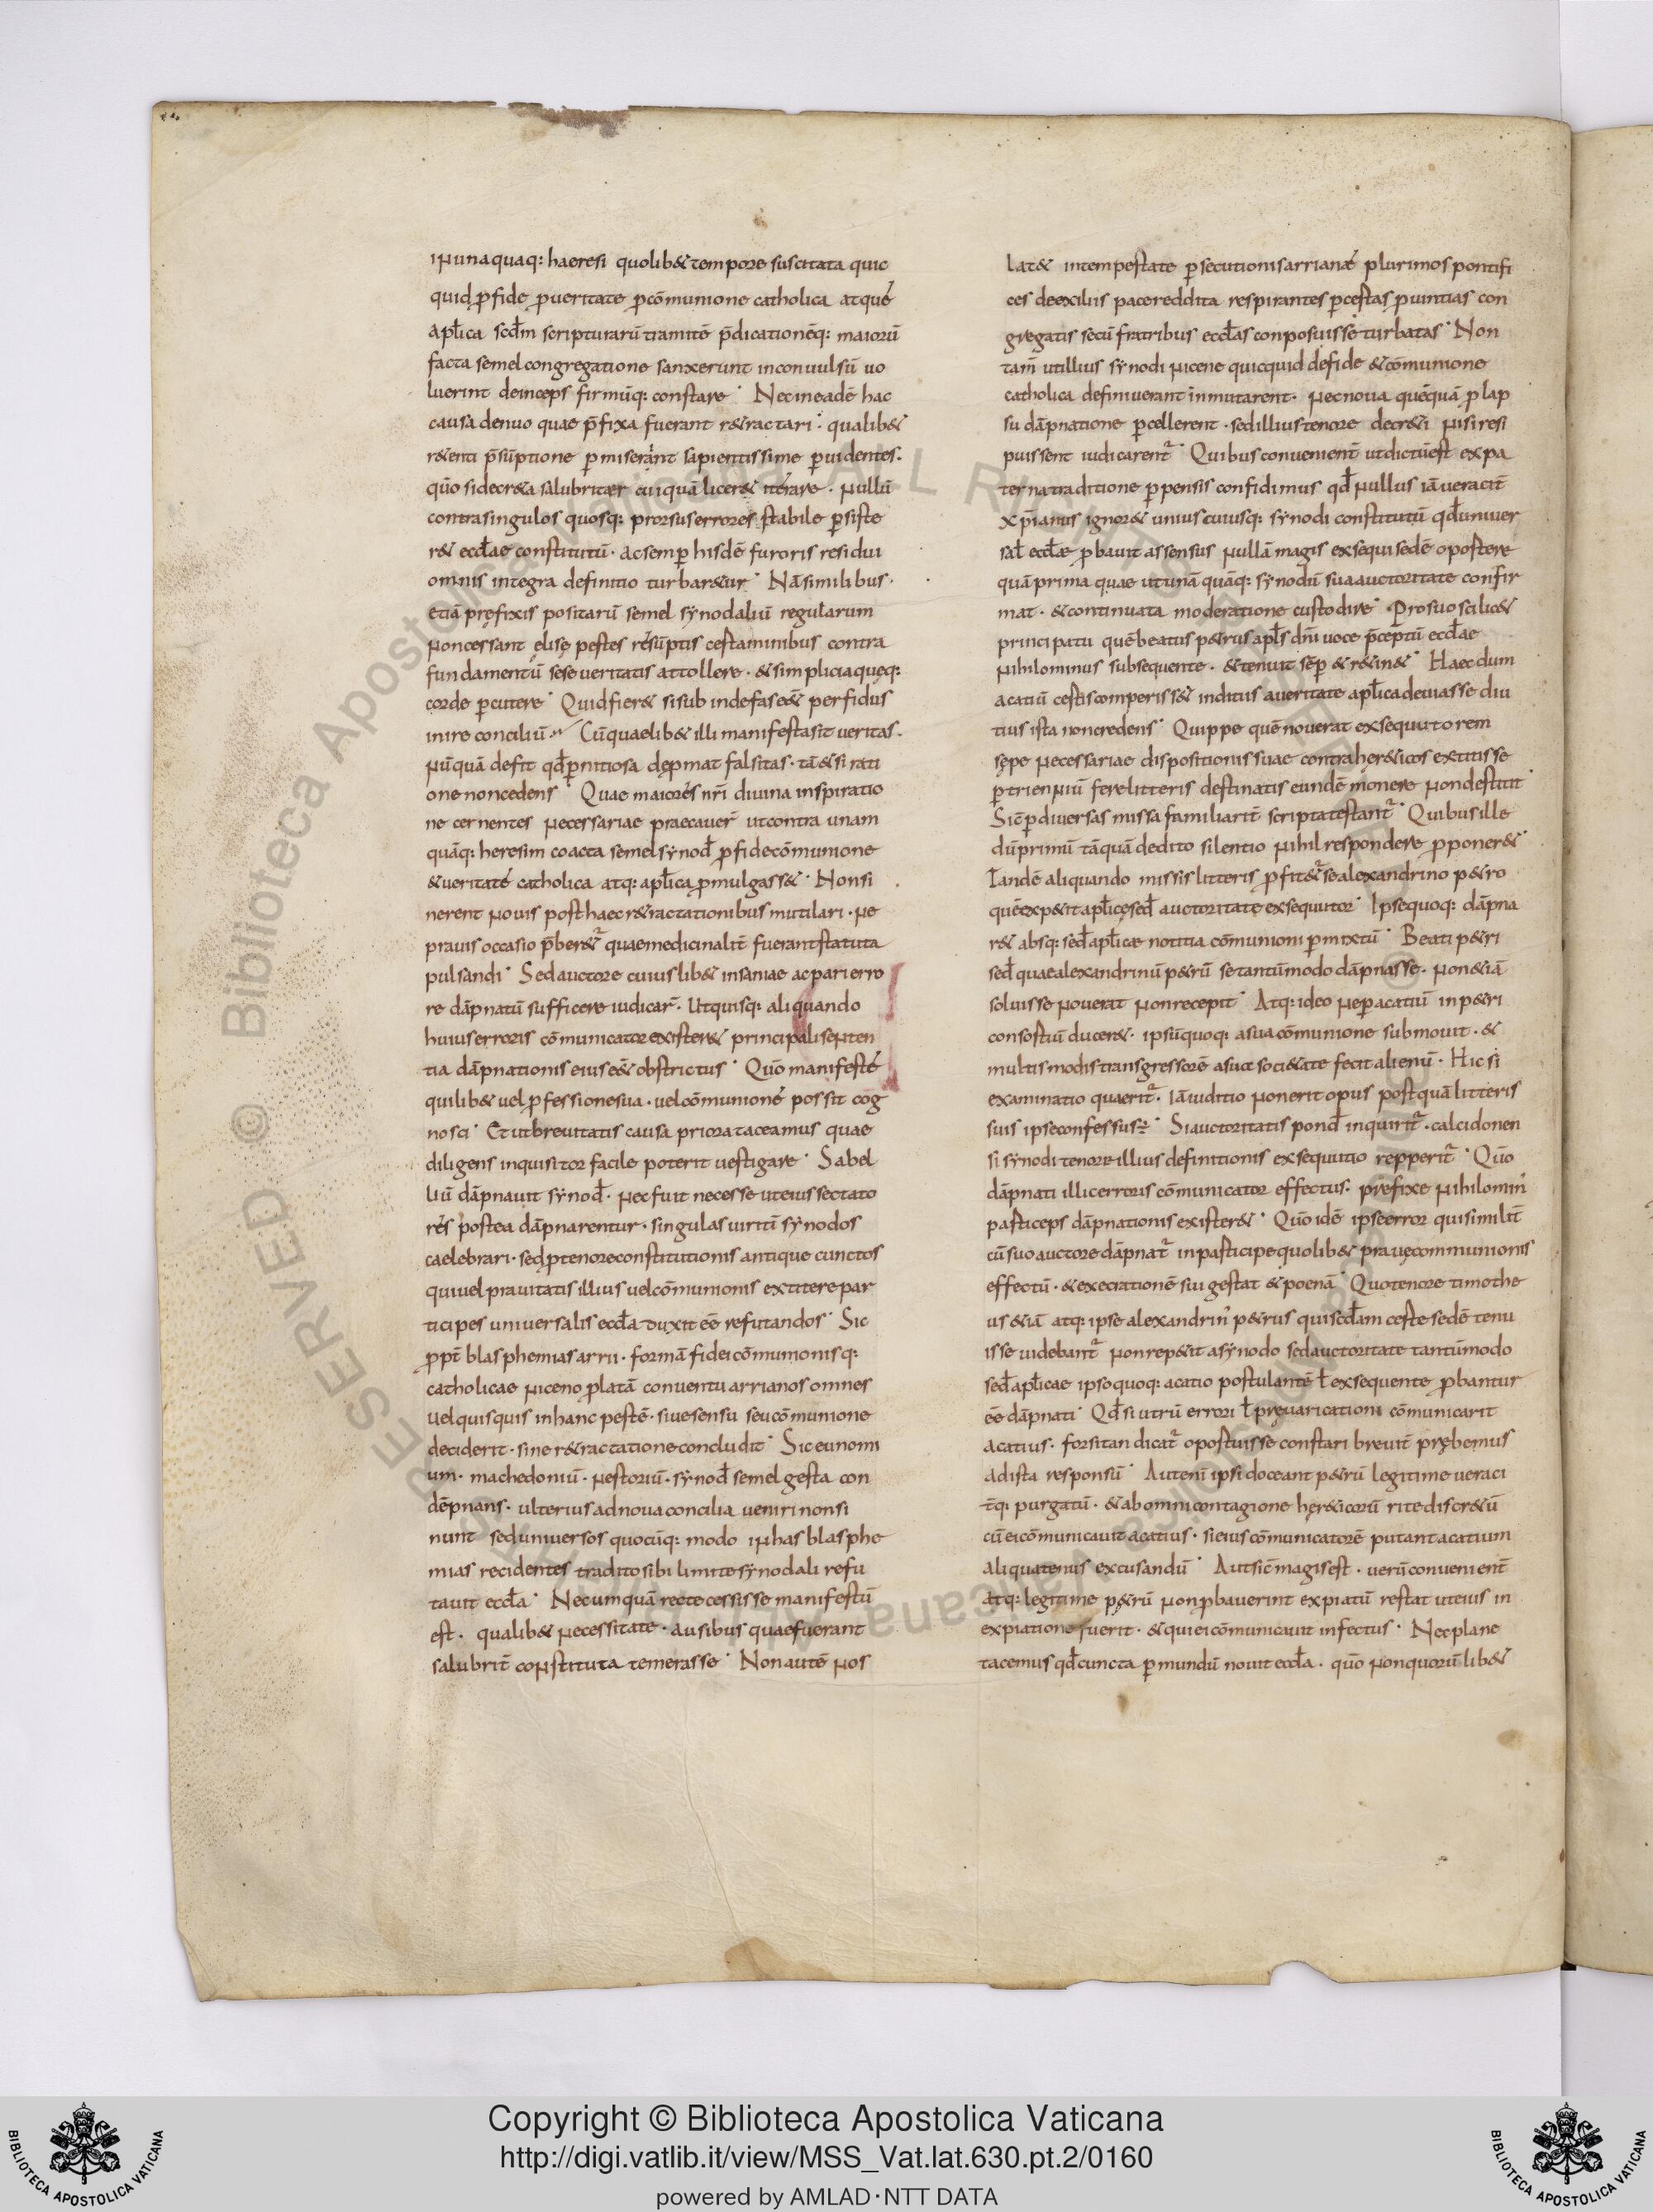 inunaquaq: haeresi quolib& tempore suscitata quic
quid ꝓfide ꝓueritate ꝓcōmunione catholica atque
apłica scđm scripturarū tramitē p̄dicationēq: maiorū
facta semel congregatione sanxerunt inconuulsū uo
luerint deinceps firmūq: constare · Necineadē hac
causa denuo quae p̄fixa fuerant r&ractari · qualib&
r&enti p̄sūptione ꝑmiserant sapientissime ꝓuidentes ·
qūo sidecr&a salubriter cuiquā licer& iterare · nullū
contrasingulos quosq: prorsus errores stabile ꝑsiste
r& eccłae constitutū · acsemꝑ hisdē furoris residui
omnis integra definitio turbar&ur · Nāsimilibus ·
etiā pręfixis positarū semel synodaliū regularum
noncessant elisę pestes resūptis certaminibus contra
fundamentū sese ueritatis attollere · & simplicia quęq:
corde ꝑcutere · Quidfier& sisub indefas eēt perfidus
inire conciliū Cū quaelib& illi manifesta sit ueritas ·
nūquā defit qđ ꝑnitiosa dępmat falsitas · tā&si rati
one noncedens · Quae maiores nr̄i diuina inspiratio
ne cernentes necessariae praecauer̄ utcontra unam
quāq: heresim coacta semel synođ ꝓfide cōmunione
& ueritate catholica atq: apłica ꝓmulgass& · Nonsi
nerent nouis posthaec r&ractationibus mutilari · ne
prauis occasio p̄ber&ur quae medicinalit̄ fuerant statuta
pulsandi · Sed auctore cuiuslib& insaniae ac pari erro
re dāpnatū sufficere iudicar̄ · Utquisq: aliquando
huius erroris cōmunicator exister& principali senten
tia dāpnationis eius eēt obstrictus · Qūo manifeste
quilib& uel ꝓfessione sua · uel cōmunione possit cog
nosci · Et utbreuitatis causa priora taceamus quae
diligens inquisitor facile poterit uestigare · Sabel
liū dāpnauit synođ · nec fuit necesse uteius sectato
res postea dāpnarentur · singulas uiritū synodos
caelebrari · sed ꝓtenore constitutionis antique cunctos
qui uel prauitatis illius uel cōmunionis extitere par
ticipes uniuersalis eccła duxit eē refutandos · Sic
ꝓpt̄ blasphemias arrii · formā fidei cōmunionisq:
catholicae niceno ꝓlatā conuentu arrianos omnes
uel quisquis inhanc pestē · siue sensu seu cōmunione
deciderit · sine r&ractatione concludit · Sic eunomi
um · machedoniū · nestoriū · synođ semel gesta con
dēpnans · ulterius ad noua concilia ueniri nonsi
nunt sed uniuersos quocūq: modo inhas blasphe
mias recidentes tradito sibi limite synodali refu
tauit eccła · Necumquā recte cessisse manifestū
est · qualib& necessitate · ausibus quae fuerant
salubrit̄ constituta temerasse · Nonautē nos
lat& intempestate ꝑsecutionis arrianae plurimos pontifi
ces deexiliis pace reddita respirantes ꝑcertas ꝓuintias con
gregatis secū fratribus eccłas conposuisse turbatas · Non
tam̄ ut illius synodi nicene quicquid defide & cōmunione
catholica definiuerant inmutarent · nec noua quēquā ꝓ lap
su dāpnatione ꝑcellerent · sed illius tenore decr&i nisi resi
puissent iudicarent̄ · Quibus conuenient̄ ut dictū est expa
terna traditione ꝑpensis confidimus qđ nullus iā ueracit̄
xp̄ianus ignor& uniuscuiusq: synodi constitutū qđ uniuer
saƚ eccłae ꝓbauit assensus nullā magis exsequi sedē oportere
quā prima quae & unā quāq: synodū sua auctoritate confir
mat · & continuata moderatione custodire · Prosuo scilic&
principatu quē beatus p&rus apƚs dn̄i uoce p̄ceptū eccłae
nihilominus subsequente · & tenuit sēꝑ & r&in& · Haec dum
acatiū certis comperiss& inditiis a ueritate apłica deuiasse diu
tius ista non credens · Quippe quē nouerat exsequutorem
sępe necessariae dispositionis suae contra her&icos extitisse
ꝑtrienniū fere litteris destinatis eundē monere non destitit ·
Sic ꝑ diuersas missa familiarit̄ scripta testant̄ · Quibus ille
dū primū tāquā dedito silentio nihil respondere ꝓponer& ·
Tandē aliquando missis litteris ꝓfit&ur se alexandrino p&ro
quē exp&it apłicę seđ auctoritate exsequutor · Ipse quoq: dāpna
r& absq: seđ apłicae notitia cōmunioni ꝑmixtū · Beati p&ri
seđ quae alexandrinū p&rū se tantūmodo dāpnasse · non &iā
soluisse nouerat non recepit · Atq: ideo ne ꝑ acatiū in p&ri
consortiū ducer& · ipsū quoq: a sua cōmunione submouit · &
multis modis transgressorē a sua soci&ate fecit alienū · Hic si
examinatio quaerit̄ · Iā iuditio non erit opus postquā litteris
suis ipse confessus · Si auctoritatis ponđ inquirit̄ · calcidonen
si synodi tenore illius definitionis exsequutio repperit̄ · Qūo
dāpnati illic erroris cōmunicator effectus · prefixe nihilomin
particeps dāpnationis exister& · Qūo idē ipse error qui similit̄
cū suo auctore dāpnat̄ in participe quolib& prauę communionis
effectū · & execrationē sui gestat & poenā · Quo tenore timothe
us &iā atq: ipse alexandrin p&rus qui seđam certe sedē tenu
isse uidebant̄ non rep&it a synodo sed auctoritate tantūmodo
seđ apłicae ipso quoq: acatio postulante ƚ exsequente ꝓbantur
eē dāpnati · Qđ si utrū errori ƚ pręuaricationi cōmunicarit
acatius · forsitan dicat̄ oportuisse constari breuit̄ prębemus
ad ista responsū · Aut eni ipsi doceant p&rū legitime ueraci
t̄q: purgatū · & ab omni contagione hęr&icorū rite discr&ū
cū ei cōmunicauit acatius · si eius cōmunicatorē putant acatium
aliquatenus excusandū · Aut sic magis est · uerū conuenient̄
atq: legitime p&rū non ꝓbauerint expiatū restat ut eius in
expiatione fuerit · & qui ei cōmunicauit infectus · Nec plane
tacemus qđ cuncta ꝑ mundū nouit eccła · qūo non quorūlib&
© Biblioteca Apostolica Vaticana ALL RIGHTS RESERVED
Copyright © Biblioteca Apostolica Vaticana
http://digi.vatlib.it/view/MSS_Vat.lat.630.pt.2/0160
powered by AMLAD·NTT DATA
BIBLIOTECA APOSTOLICA VATICANA
BIBLIOTECA APOSTOLICA VATICANA